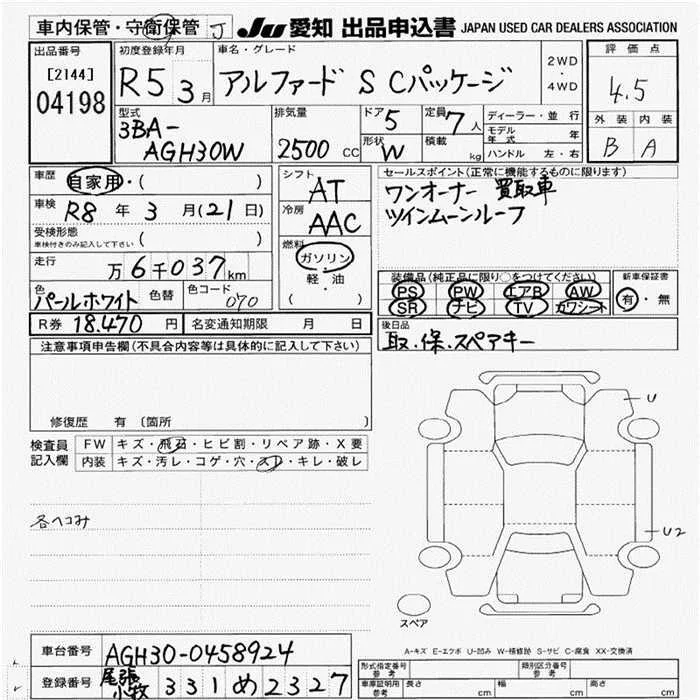 車内保管・守衛保管 J JU 愛知 出品申込書 JAPAN USED CAR DEALERS ASSOCIATION
出品番号 初度登録年月 車名・グレード 評価点
[2144] 04198 R5 3月 アルファード S Cパッケージ 2WD・4WD 4.5
型式 排気量 ドア 5 定員 7人 ディーラー・並行 外装 内装
3BA-AGH30W 2500CC 形状 W 積載 kg モデル年式 年 B A
ハンドル 左・右
車歴 自家用・( ) シフト AT セールスポイント(正常に機能するものに限ります)
車検 R8年3月(21日) 冷房 AAC ワンオーナー 買取車
ツインムーンルーフ
受検形態 車検付きのみ記入して下さい ( ) 燃料 ガソリン・軽油 ( )
走行 万6千037km 装備品(純正品に限り○をつけてください) 新車保証書
色 パールホワイト 色替 色コード 070 PS PW エアB AW 有・無
SR ナビ TV カワシート
R券 18.470円 名変通知期限 月 日 後日品
取.保.スペアキー
注意事項申告欄(不具合内容等は具体的に記入して下さい)
修復歴 有 〔箇所 〕
検査員記入欄 FW キズ・飛石・ヒビ割・リペア跡・X要
内装 キズ・汚レ・コゲ・穴・スレ・キレ・破レ
U
U2
各ヘコみ
スペア
A-キズ E-エクボ U-凹み W-補修跡 S-サビ C-腐食 XX-交換済
車台番号 AGH30-0458924
登録番号 尾張小牧 331 め 2327
形式指定番号 参考 類別区分番号 参考
車庫証明用 参考 長さ cm 幅 cm 高さ cm